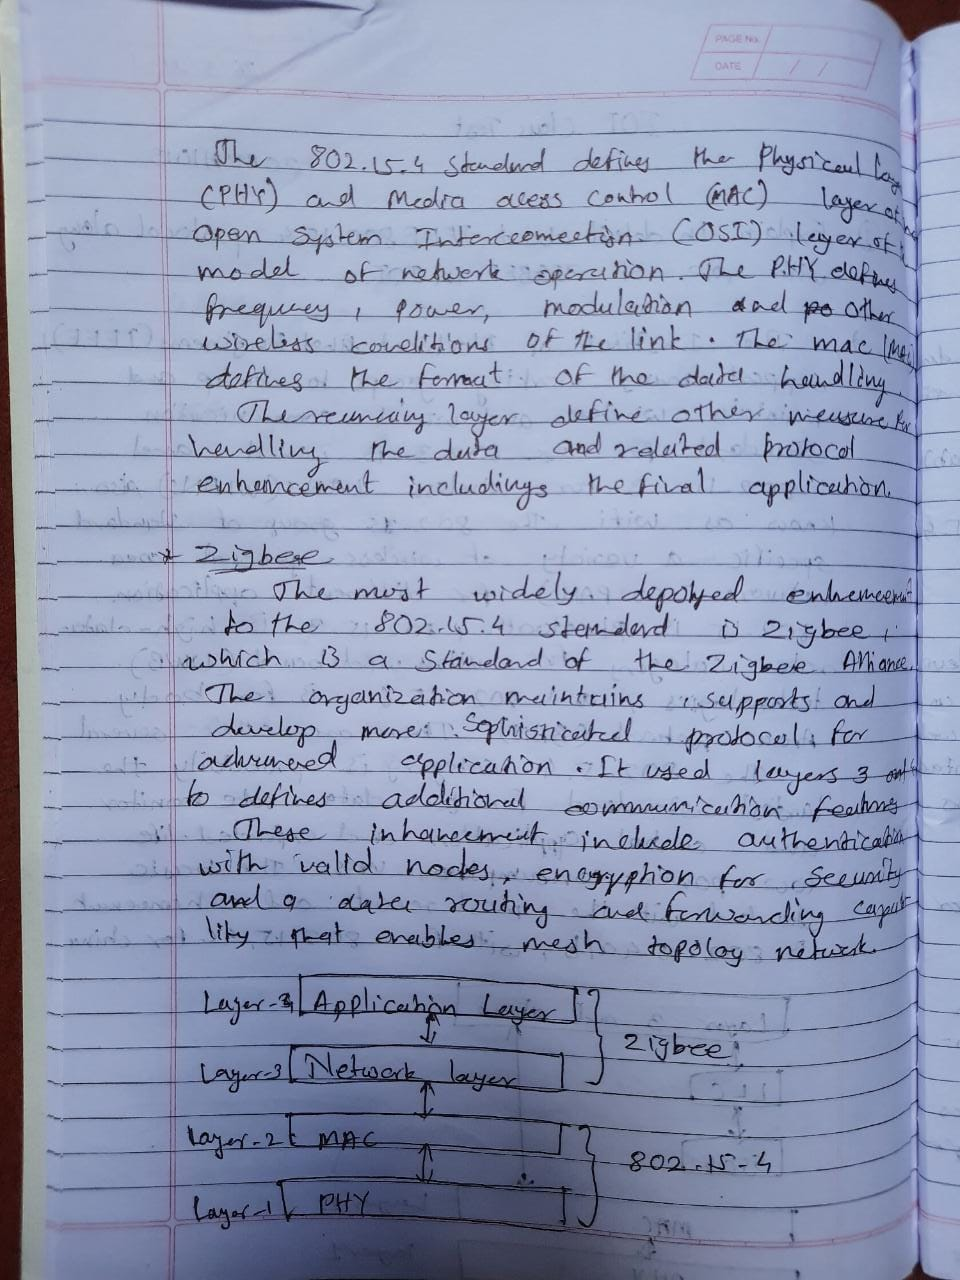 PAGE No.
DATE / /
The 802.15.4 Standard defines the Physical
(PHY) and Media acess Control (MAC) layer of
Open System Interconnection (OSI) layer of
model of network operation. The PHY defines
frequecy, Power, modulation and po Other
wireless conditions of the link. The mac
defines the format of the data handling
The remaining layer define other measure for
handling the data and related protocol
enhancement includings the final application.
* Zigbee
The most widely depolyed enhancement
to the 802.15.4 standard is Zigbee,
which is a Standard of the Zigbee Alliance.
The organization maintains, supports and
develop more Sophisticated protocol for
advanced application. It used layers 3
to defines additional communication features
These inhancement include authentication
with valid nodes, encryption for Security
and a data routing and forwarding capabi
lity that enables mesh topoloy network.
Layer-4 Application Layer
Zigbee
Layer-3 Network layer
Layer-2 MAC
802.15-4
Layer-1 PHY